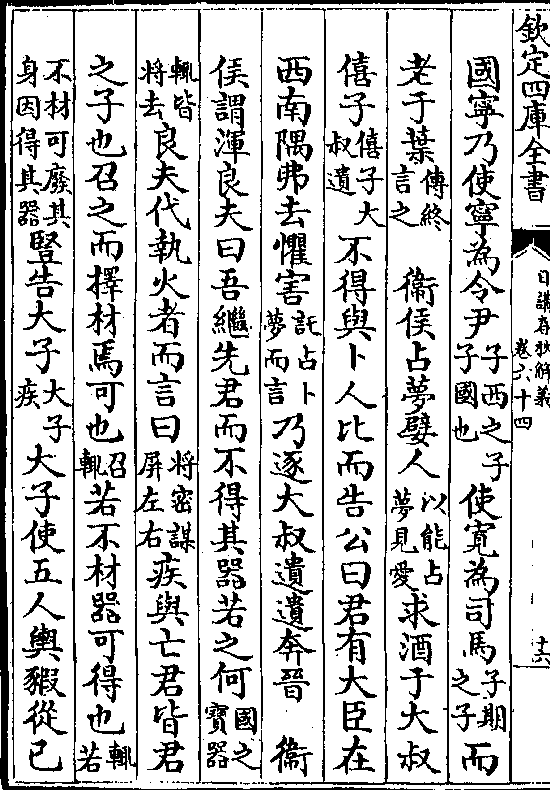 欽定四庫全書
日講春秋解義
卷六十四
十六
國寧乃使寧為令尹子西之子子國也使寬為司馬子期之子而
老于葉傳終言之 衛侯占夢嬖人以能占夢見愛求酒于大叔
僖子僖子大叔遺不得與卜人比而告公曰君有大臣在
西南隅弗去懼害託占卜夢而言乃逐大叔遺遺奔晉 衛
侯謂渾良夫曰吾繼先君而不得其器若之何國之寶器
輒皆將去良夫代執火者而言曰將密謀屏左右疾與亡君皆君
之子也召之而擇材焉可也召輒若不材器可得也輒若
不材可廢其身因得其器豎告大子大子疾大子使五人輿豭從已